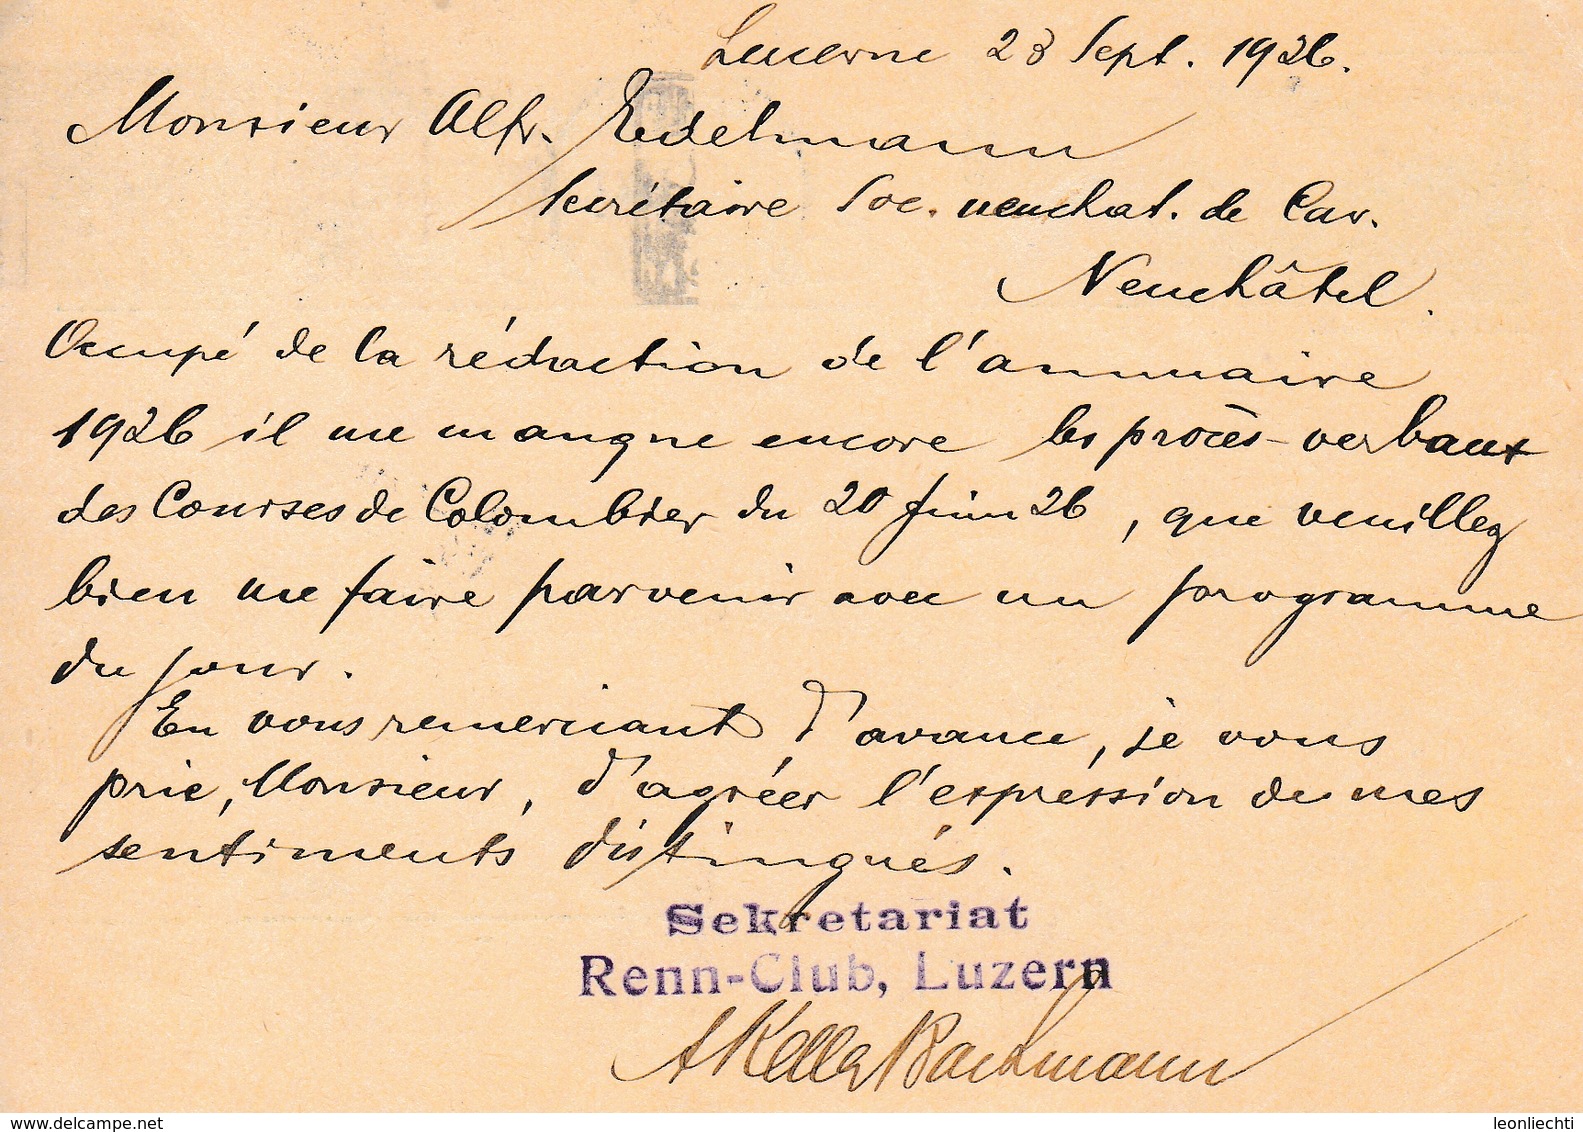 Lucerne 23 Sept. 1926.
Monsieur Alfr. Edelmann
Secrétaire Soc. neuchat. de Cav.
Neuchâtel.
Occupé de la rédaction de l'annuaire
1926 il me manque encore les procès-verbaux
des Courses de Colombier du 20 Juin 26, que veuillez
bien me faire parvenir avec un programme
du jour.
En vous remerciant d'avance, je vous
prie, Monsieur, d'agréer l'expression de mes
sentiments distingués.
Sekretariat
Renn-Club, Luzern
A Keller Bachmann
www.delcampe.net
leonliechti